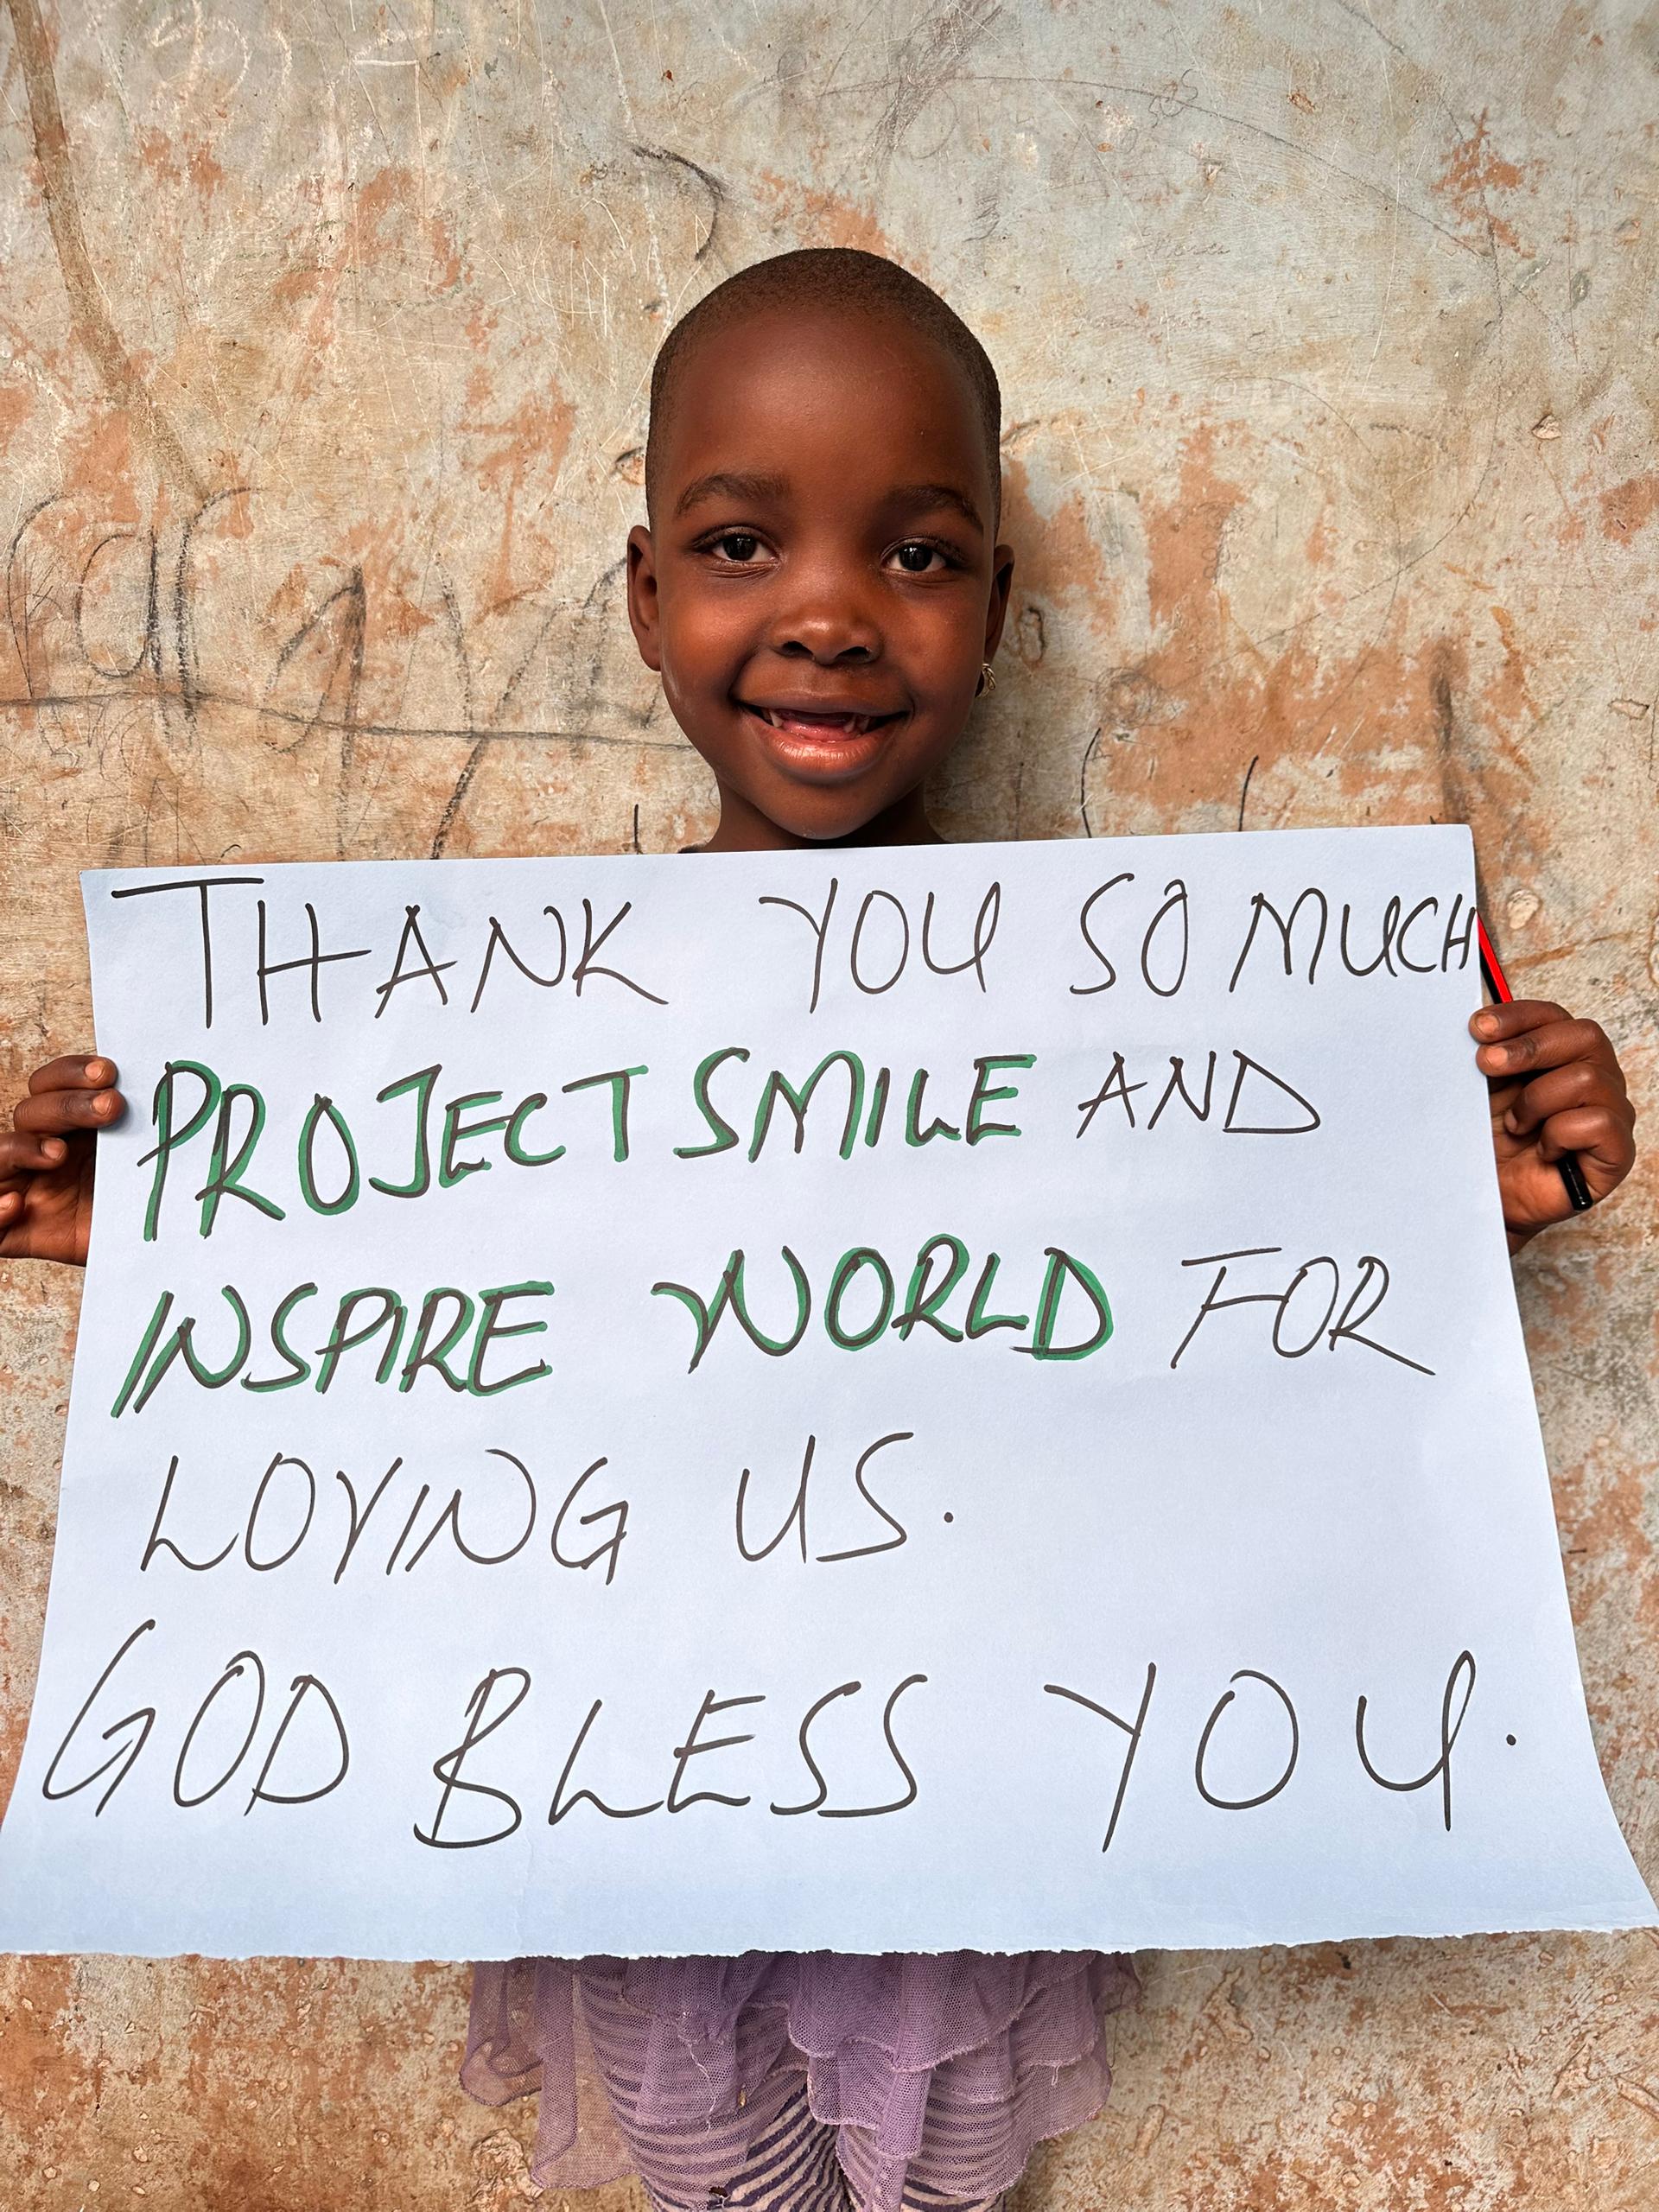 THANK YOU SO MUCH
PROJECT SMILE AND
INSPIRE WORLD FOR
LOVING US.
GOD BLESS YOU.